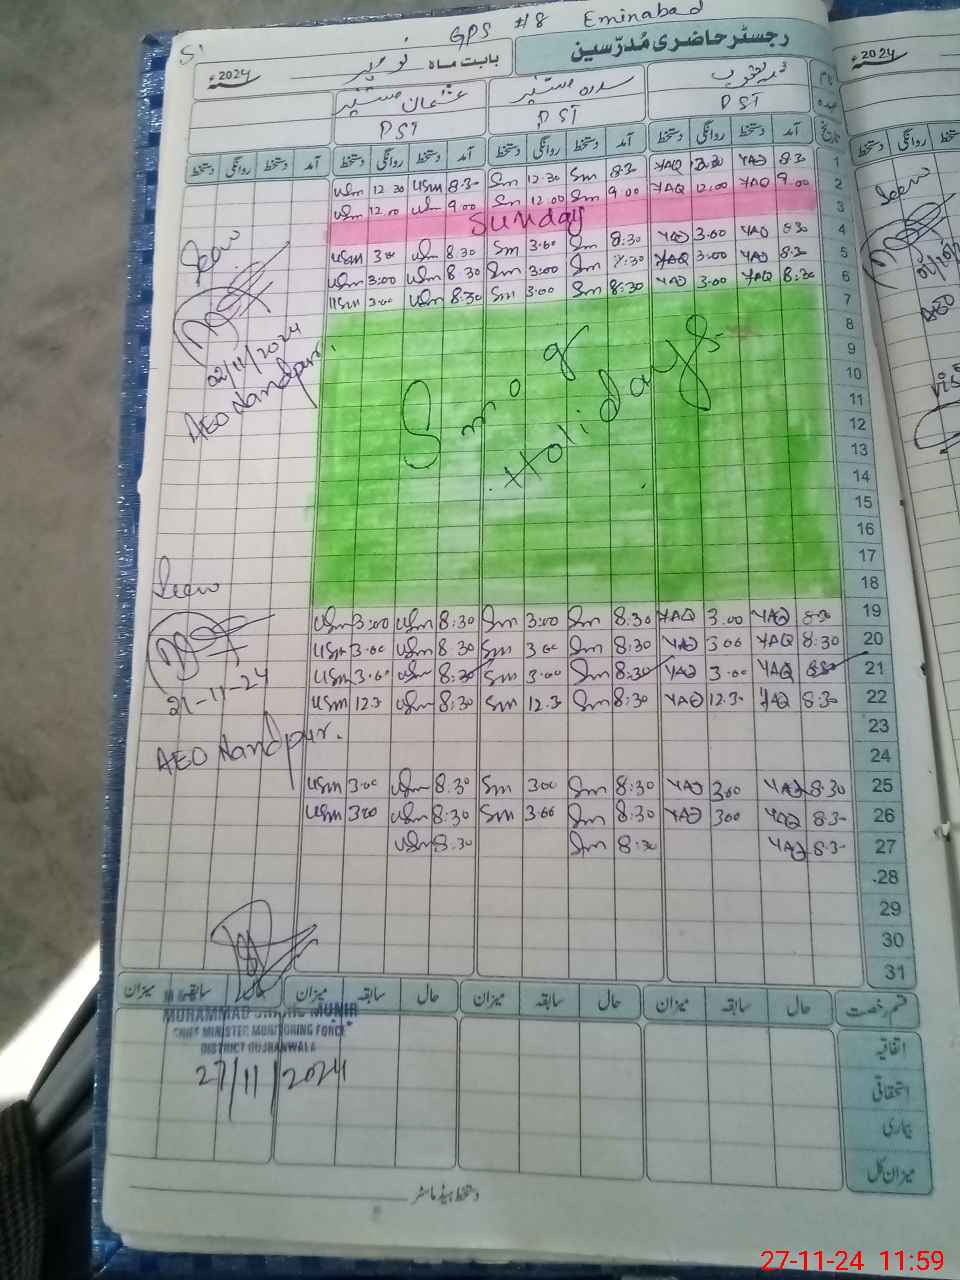 GPS #8 Eminabad
رجسٹر حاضری مُدرّسین
بابت ماہ نومبر 2024ء
نام
عہدہ PST PST PST
تاریخ آمد دستخط روانگی دستخط آمد دستخط روانگی دستخط آمد دستخط روانگی دستخط آمد دستخط روانگی دستخط
1 8.30 YAQ 12.30 YAQ 8.30 Sm 12.30 Sm 8.30 usm 12.30 usm
2 9.00 YAQ 12.00 YAQ 9.00 Sm 12.00 Sm 9.00 usm 12.00 usm
3 Sunday
4 8.30 YAQ 3.00 YAQ 8:30 Sm 3.00 Sm 8.30 usm 3.00 usm
5 8.30 YAQ 3:00 YAQ Sm 3:00 Sm 8.30 usm 3:00 usm
6 8:30 YAQ 3.00 YAQ 8:30 Sm 3.00 Sm 8:30 usm 3.00 usm
7
8
9
10
11
12
13
14
15
16
17
18
Smog
Holidays
19 8:30 YAQ 3.00 YAQ 8:30 Sm 3:00 Sm 8:30 usm 3:00 usm
20 8:30 YAQ 3.00 YAQ 8:30 Sm 3.00 Sm 8:30 usm 3.00 usm
21 8:30 YAQ 3.00 YAQ 8:30 Sm 3.00 Sm 8:30 usm 3.00 usm
22 8:30 YAQ 12.30 YAQ 8:30 Sm 12.30 Sm 8:30 usm 12.30 usm
23
24
25 8.30 YAQ 3.00 YAQ 8:30 Sm 3.00 Sm 8.30 usm 3.00 usm
26 8.30 YAQ 3.00 YAQ 8:30 Sm 3.00 Sm 8:30 usm 3.00 usm
27 8.30 YAQ 8:30 Sm 8:30 usm
28
29
30
31
Seen
02/11/2024
AEO Nandpur.
Seen
21-11-24
AEO Nandpur.
قسم رخصت حال سابقہ میزان حال سابقہ میزان حال سابقہ میزان حال سابقہ میزان
اتفاقیہ
استحقاقی
بیماری
میزان کل
MUHAMMAD MUNIR
CHIEF MINISTER MONITORING FORCE
DISTRICT GUJRANWALA
27/11/2024
دستخط ہیڈ ماسٹر
2024ء
Seen
AEO
27-11-24 11:59